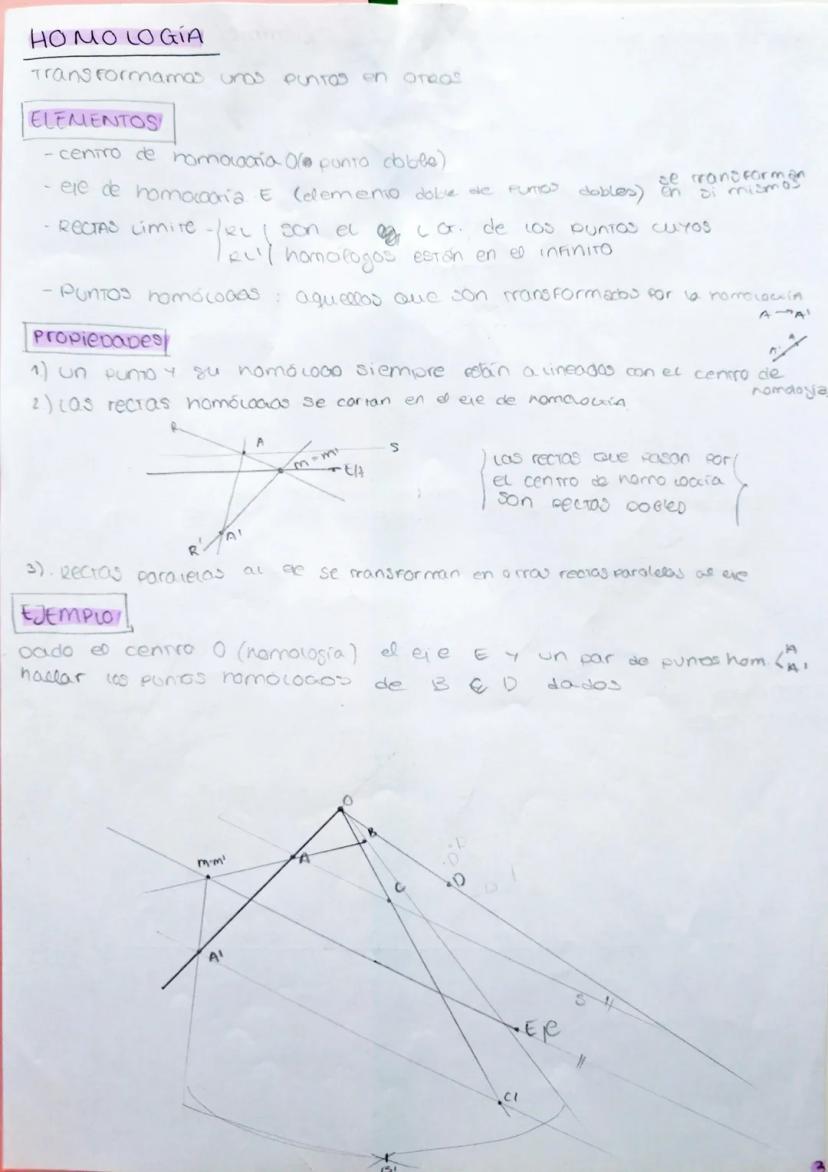 HOMOLOGÍA
Transformamos unos puntos en otros
ELEMENTOS
- centro de homología O (punto doble)
- eje de homología E (elemento doble de puntos dobles) se transforman en si mismos
- RECTAS Límite - RL son el L Gr. de los puntos cuyos
RL' homólogos están en el INFINITO
- Puntos homólogos : aquellos que son transformados por la homología
A → A'
PROPIEDADES
1) Un punto y su homólogo siempre están alineados con el centro de homología
2) Las rectas homólogas se cortan en el eje de homología
R
A
S
M = M'
R'
A'
Las rectas que pasan por
el centro de homología
son rectas dobles
3). Rectas paralelas al eje se transforman en otras rectas paralelas al eje
EJEMPLO
Dado el centro O (homología) el eje E y un par de puntos hom. A
A'
hallar los puntos homólogos de B C D dados
O
B
D
D
M-M'
A
D
D
C
A'
S //
Eje
//
C'
B'